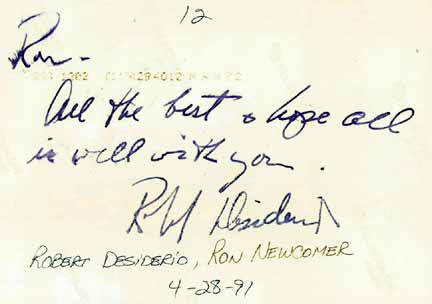 12
Ron -
All the best & hope all
is well with you.
Robert Desiderio
ROBERT DESIDERIO, RON NEWCOMER
4-28-91